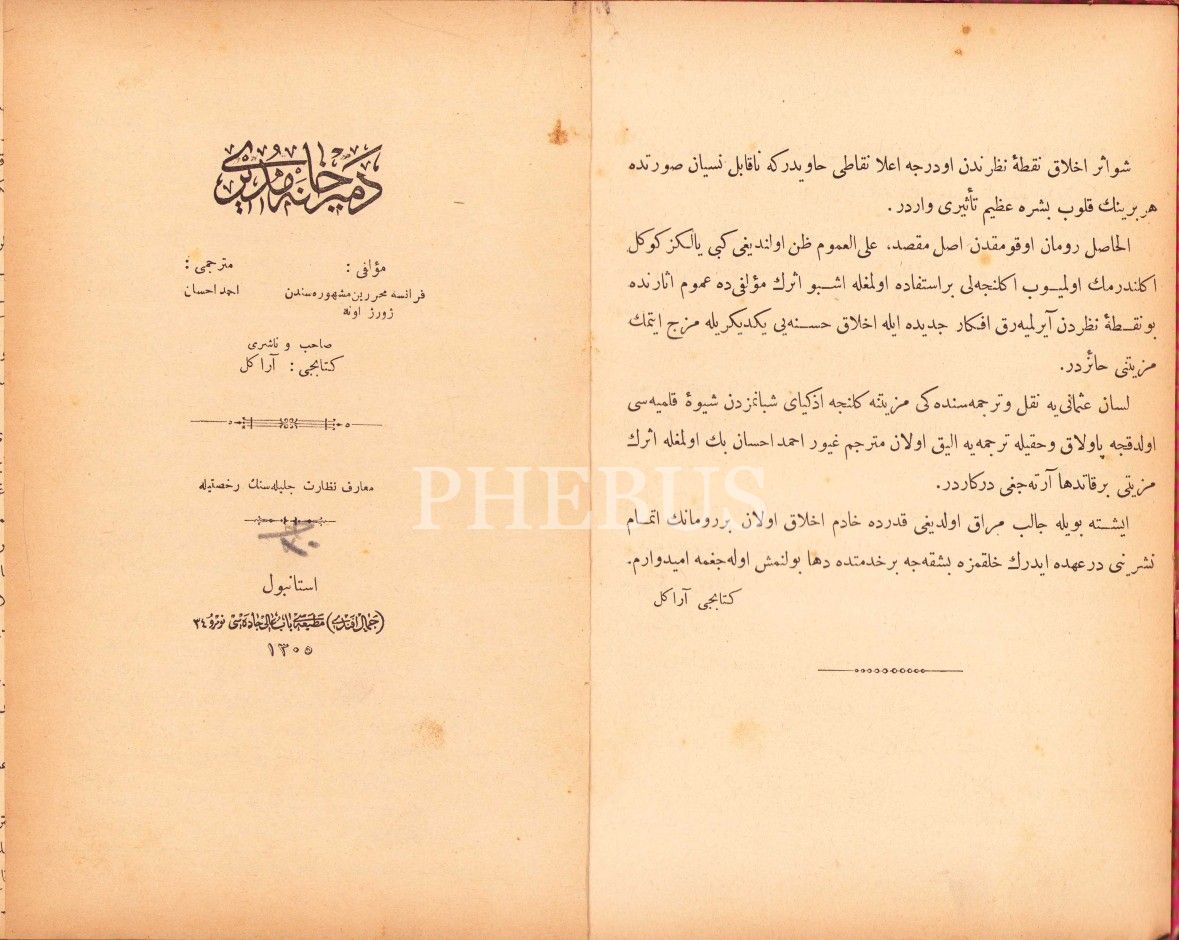 شو اثر اخلاق نقطهٔ نظرندن اودرجه اعلا نقاطی حاویدرکه ناقابل نسیان صورتده
هر برینك قلوب بشره عظیم تأثیری واردر.
الحاصل رومان اوقومقدن اصل مقصد، علی العموم ظن اولندیغی کبی یالکز کوکل
اکلندرمك اولمیوب اکلنجه‌لی بر استفاده اولمغله اشبو اثرك مؤلفی ده عموم اثارنده
بو نقطهٔ نظردن آیرلمیه‌رق افکار جدیده ایله اخلاق حسنه‌یی یکدیکریله مزج ایتمك
مزیتنی حائزدر.
لسان عثمانی‌یه نقل و ترجمه‌سنده‌کی مزیتنه کلنجه اذکیای شبانمزدن شیوهٔ قلمیه‌سی
اولدقجه پاولاق و حقیله ترجمه‌یه الیق اولان مترجم غیور احمد احسان بك اولمغله اثرك
مزیتی بر قاتدها آرته‌جغی درکاردر.
ایشته بویله جالب مراق اولدیغی قدرده خادم اخلاق اولان بر رومانك اتمام
نشرینی درعهده ایدرك خلقمزه بشقه‌جه بر خدمتده دها بولنمش اوله‌جغمه امیدوارم.
کتابجی آراکل
دمیرخانه مدیری
مؤلفی :
مترجمی :
فرانسه محررین مشهوره‌سندن
احمد احسان
ژورژ اونه
صاحب و ناشری
کتابجی : آراکل
معارف نظارت جلیله‌سنك رخصتیله
استانبول
(جمال افندی) مطبعه‌سی باب عالی جاده‌سی نومرو ٣٤
١٣٠٥
PHEBUS